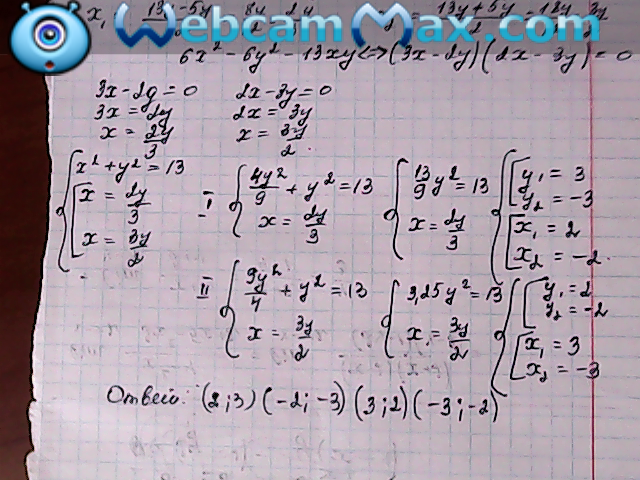 WebcamMax.com
x₁ = (13y-5y)/ 8y 2y = (13y+5y)/ = 18y 3y
6x² - 6y² - 13xy <=> (3x-2y)(2x-3y) = 0
3x-2y=0 2x-3y=0
3x=2y 2x=3y
x = 2y/3 x = 3y/2
{x²+y²=13 [x = 2y/3 x = 3y/2 I {4y²/9 + y² = 13 x = 2y/3 {13/9 y² = 13 x = 2y/3 {[y₁ = 3 y₂ = -3 [x₁ = 2 x₂ = -2.
II {9y²/4 + y² = 13 x = 3y/2 {3,25y² = 13 x = 3y/2 {[y₁ = 2 y₂ = -2 [x₁ = 3 x₂ = -3
Ответ: (2;3) (-2;-3) (3;2) (-3;-2)